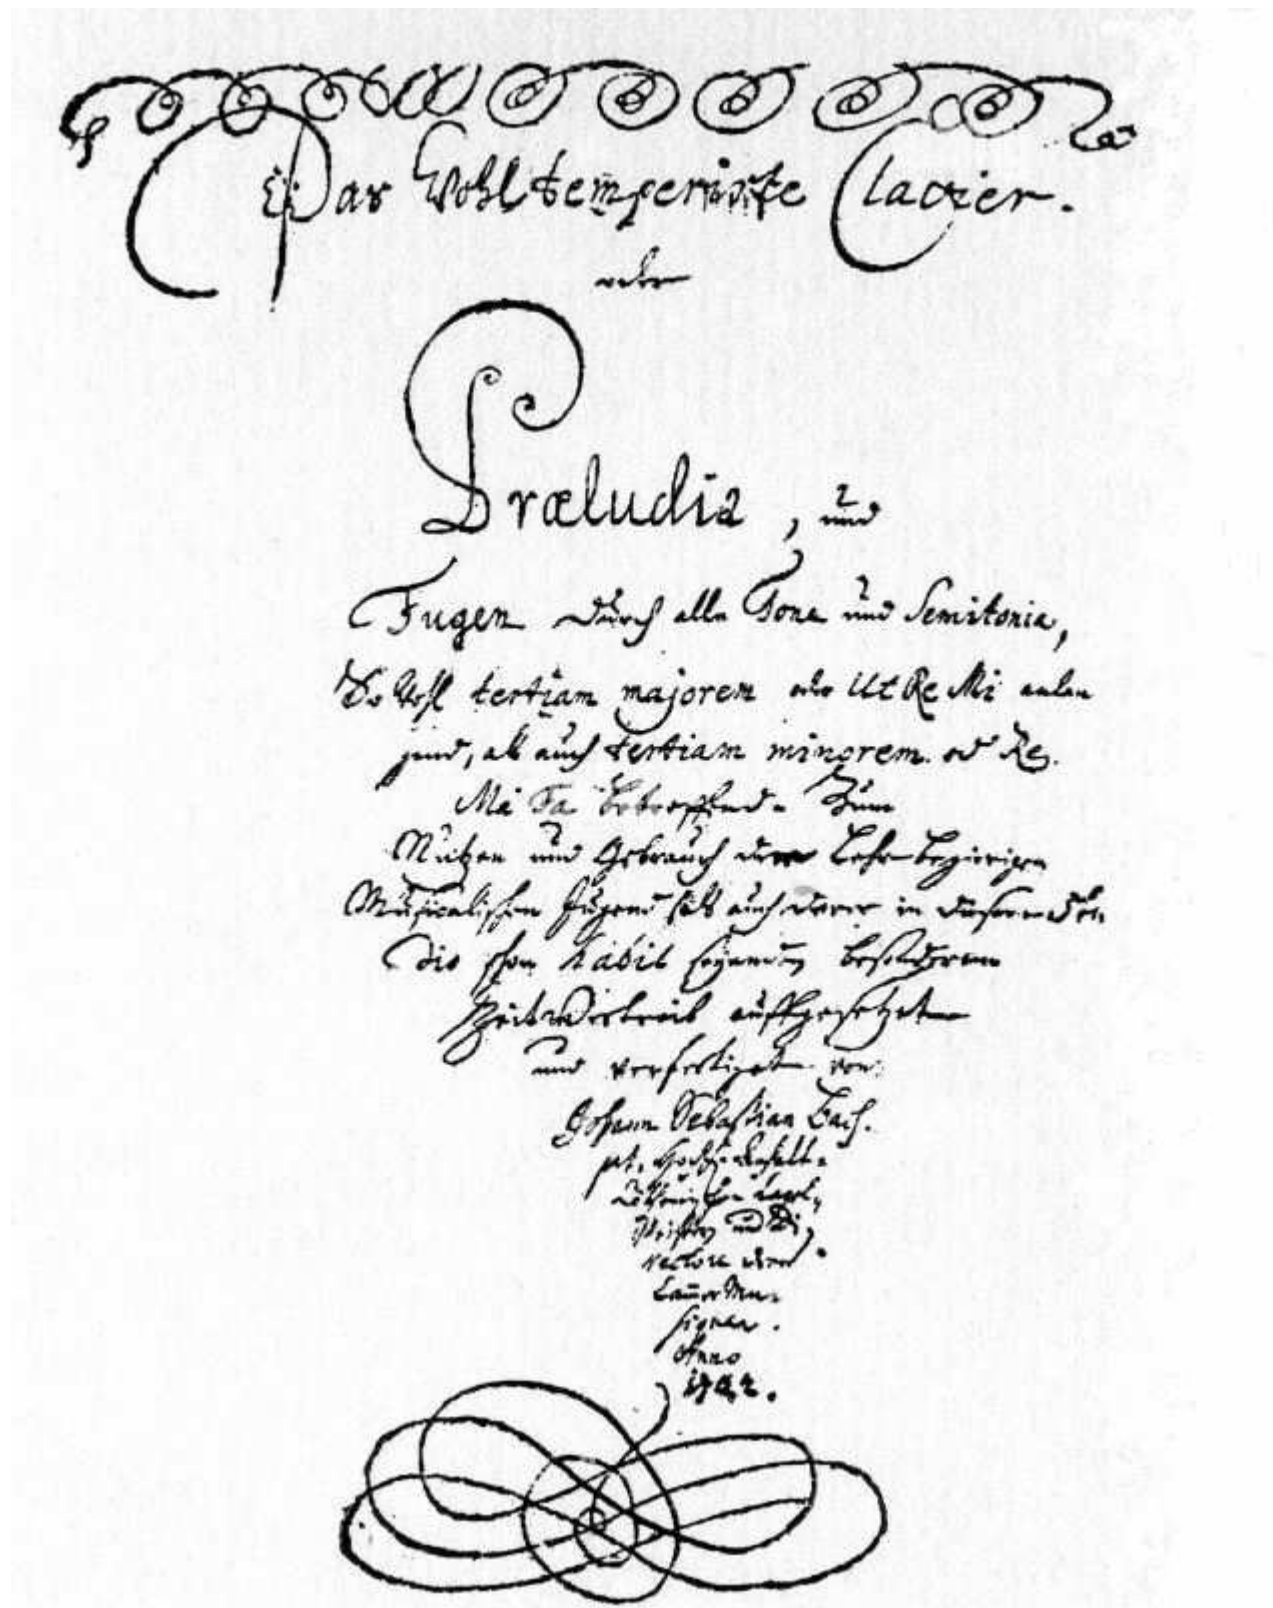 Das Wohltemperirte Clavier.
oder
Præludia, und
Fugen durch alle Tone und Semitonia,
So wohl tertiam majorem oder Ut Re Mi anlan
gend, als auch tertiam minorem oder Re
Mi Fa betreffend. Zum
Nutzen und Gebrauch der Lehr-begierigen
Musicalischen Jugend als auch derer in diesem stu
dio schon habil seyenden besonderem
Zeitvertreib auffgesetzet
und verfertiget von
Johann Sebastian Bach.
p. t. HochFürstl.
Anhalt-Cöthenischen Capel-
Meistern und Di-
rectore derer
Cammer Mu-
siquen.
Anno
1722.